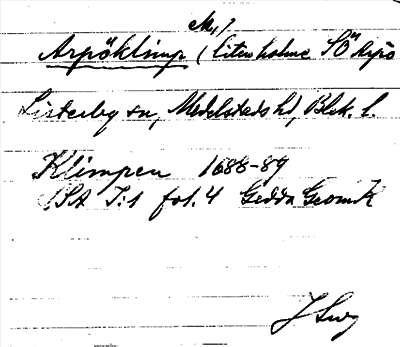 M,)
Arpöklimp (liten holme SÖ Arpö
Listerby sn, Medelstads hd, Blek. l.
Klimpen 1688-89
SSA I:1 fol. 4 Gedda GeomK